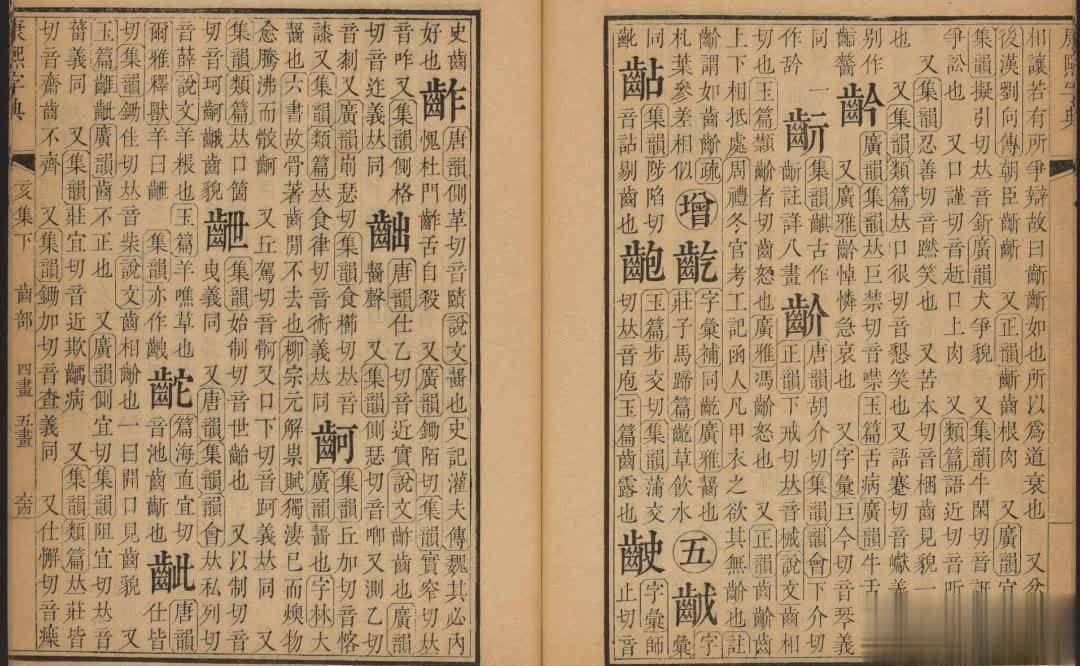 相讓若有所爭辯故曰齗齗如也所以爲道衰也 又
後漢劉向傳朝臣齗齗 又正韻齗齒根肉 又廣韻宜
集韻擬引切𠀤音釿廣韻犬爭貌 又集韻牛閑切音
爭訟也 又口謹切音逝口上肉 又類篇語近切音听
又集韻忍善切音蹨笑也 又苦本切音梱齒見貌一
也 又集韻類篇𠀤口很切音懇笑也又語蹇切音巘義
別作
齘 廣韻集韻𠀤巨禁切音噤玉篇舌病廣韻牛舌
又廣雅齡悼憐急哀也 又字彙巨今切音琴義
同 一
作聆
齗 集韻齳古作
齗註詳八畫
齘 唐韻胡介切集韻韻會下介切
正韻下戒切𠀤音械說文齒相
切也玉篇䫴齘者切齒怒也廣雅馮齘怒也 又正韻齒齘齒
上下相抵處周禮冬官考工記函人凡甲衣之欲其無齘也註
齘謂如齒齘 齒疏
札葉參差相似
增 齕 字彙補同齕廣雅齧也
莊子馬蹄篇齕草飮水
五 䶡 字
彙
同
齜
䶢 集韻陟陷切
音詀剔齒也
齙 玉篇步交切集韻蒲交
切𠀤音庖玉篇齒露也
䶥 字彙師
止切音
史齒
好也
齚 唐韻側革切音賾說文齰也史記灌夫傳魏其必內
愧杜門齚舌自殺 又廣韻鋤陌切集韻實窄切𠀤
音咋又集韻側格
切音迮義𠀤同
齣 唐韻仕乙切音近實說文齚齒也廣韻
齰聲 又集韻側瑟切音唧又測乙切
音刺又廣韻崩瑟切集韻食櫛切𠀤音
漆又集韻類篇𠀤食律切音術義𠀤同
齣 齒可 廣韻齧也字林大
齧也六書故骨著齒閒不去也柳宗元解祟賦獨凄已而燠物
愈騰沸而骸齣 又丘駕切音骻又口下切音跒義𠀤同 又
集韻類篇𠀤口箇
切音珂齣齬齒貌
齛 集韻始制切音世齝也 又以制切音
曳義同 又唐韻集韻韻會𠀤私列切
音薛說文羊粻也玉篇羊噍草也
爾雅釋獸羊曰齥 集韻亦作齛
䶔 篇海直宜切
音池齒齗也
齜 唐韻
仕皆
切集韻鋤佳切𠀤音柴說文齒相齘也一曰開口見齒貌 又
玉篇齜齜廣韻齒不正也 又廣韻側宜切集韻阻宜切𠀤音
葘義同 又集韻莊宜切音近欺齵病 又集韻類篇𠀤莊皆
切音齋齒不齊 又集韻鋤加切音査義同 又仕懈切音瘵
康熙字典
亥集下 齒部 四畫 五畫